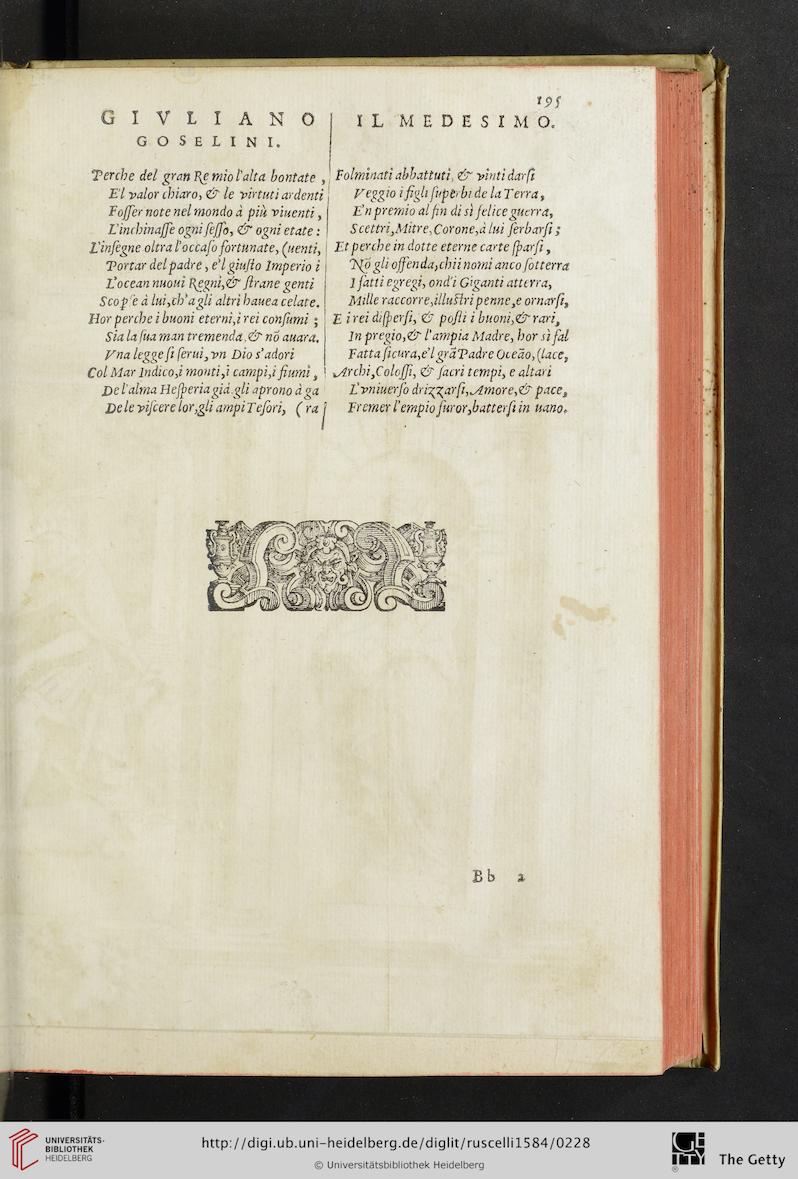 195
GIVLIANO
GOSELINI.
Perche del gran Re mio l'alta bontate,
E'l valor chiaro, & le virtuti ardenti
Foſſer note nel mondo à più viuenti,
L'inchinaſſe ogni ſeſſo, & ogni etate:
L'inſegne oltra l'occaſo fortunate, (uenti,
Portar del padre, e'l giuſto Imperio i
L'ocean nuoui Regni,& ſtrane genti
Scopſe à lui,ch'a gli altri hauea celate.
Hor perche i buoni eterni,i rei conſumi;
Sia la ſua man tremenda,& nō auara.
Vna legge ſi ſerui,vn Dio s'adori
Col Mar Indico,i monti,i campi,i fiumi,
De l'alma Heſperia già gli aprono à ga
De le viſcere lor,gli ampi Teſori, (ra
IL MEDESIMO.
Folminati abbattuti, & vinti darſi
Veggio i figli ſuperbi de la Terra,
E'n premio al fin di sì felice guerra,
Scettri,Mitre,Corone,à lui ſerbarſi;
Et perche in dotte eterne carte ſparſi,
Nō gli offenda,chi i nomi anco ſotterra
I fatti egregi, ond'i Giganti atterra,
Mille raccorre,illuſtri penne,e ornarſi,
E i rei diſperſi, & poſti i buoni,& rari,
In pregio,& l'ampia Madre, hor sì fal
Fatta ſicura,e'l grā Padre Oceāo,(lace,
Archi,Coloſſi, & ſacri tempi, e altari
L'vniuerſo drizzarſi,Amore,& pace,
Fremer l'empio furor,batterſi in uano.
Bb 2
UNIVERSITÄTS-
BIBLIOTHEK
HEIDELBERG
http://digi.ub.uni-heidelberg.de/diglit/ruscelli1584/0228
© Universitätsbibliothek Heidelberg
GETTY
The Getty